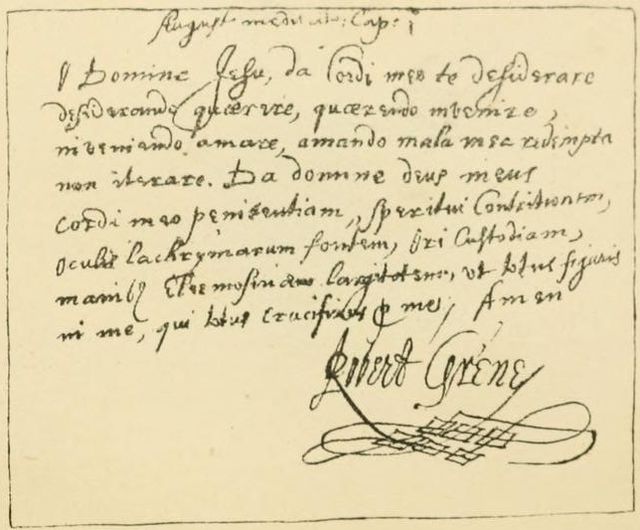 August meditatio: Cap: i
O Domine Jesu, da Cordi meo te desiderare
desiderando quærere, quærendo invenire,
inveniendo amare, amando mala mea redempta
non iterare. Da domine deus meus
Cordi meo penitentiam, speritui Contritionem,
oculis lachrymarum fontem, ori Custodiam,
Eleemosinæ largitatem, ut totus figaris
in me, qui totus Crucifixus me, Amen
Robert Grene